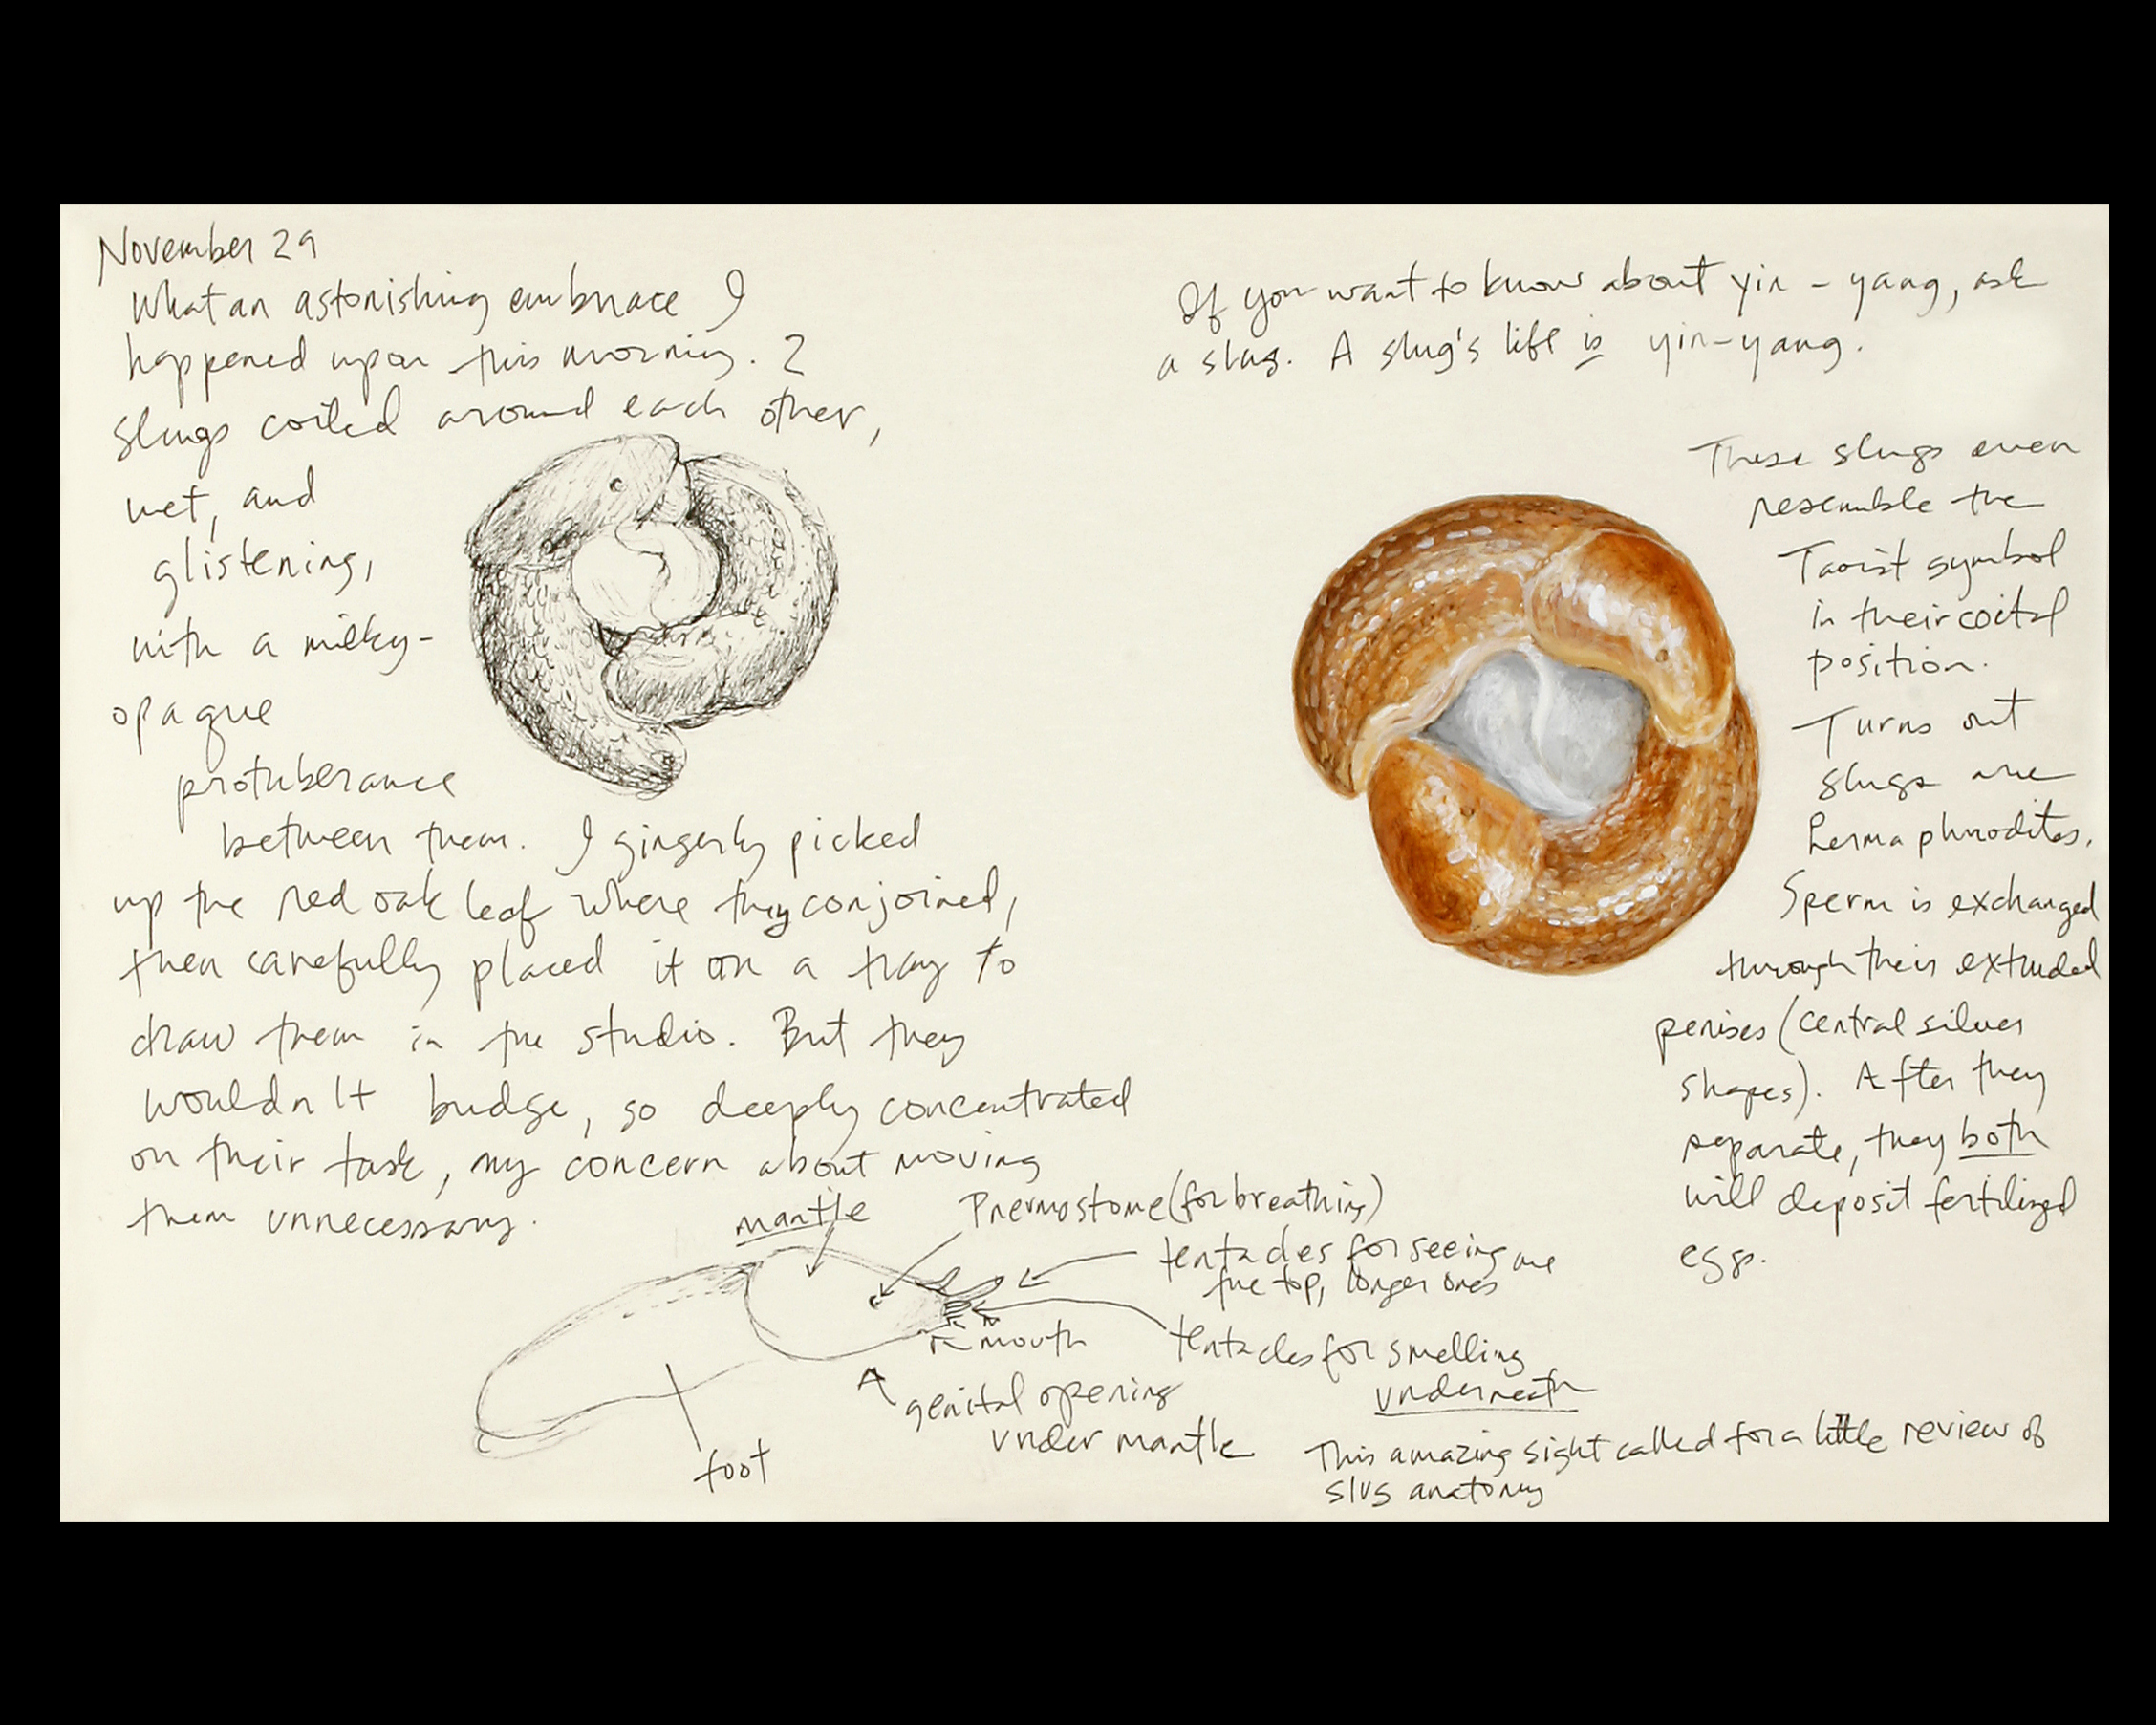 November 29
What an astonishing embrace I
happened upon this morning. 2
slugs coiled around each other,
wet, and
glistening,
with a milky-
opaque
protuberance
between them. I gingerly picked
up the red oak leaf where they conjoined,
then carefully placed it on a tray to
draw them in the studio. But they
wouldn't budge, so deeply concentrated
on their task, my concern about moving
them unnecessary.
mantle
Pnermostome (for breathing)
tentacles for seeing are
the top, longer ones
mouth
tentacles for smelling
underneath
genital opening
under mantle
foot
This amazing sight called for a little review of
slug anatomy
If you want to know about yin-yang, ask
a slug. A slug's life is yin-yang.
These slugs even
resemble the
Taoist symbol
in their coital
position.
Turns out
slugs are
hermaphrodites.
Sperm is exchanged
through their extruded
penises (central silver
shapes). After they
separate, they both
will deposit fertilized
eggs.